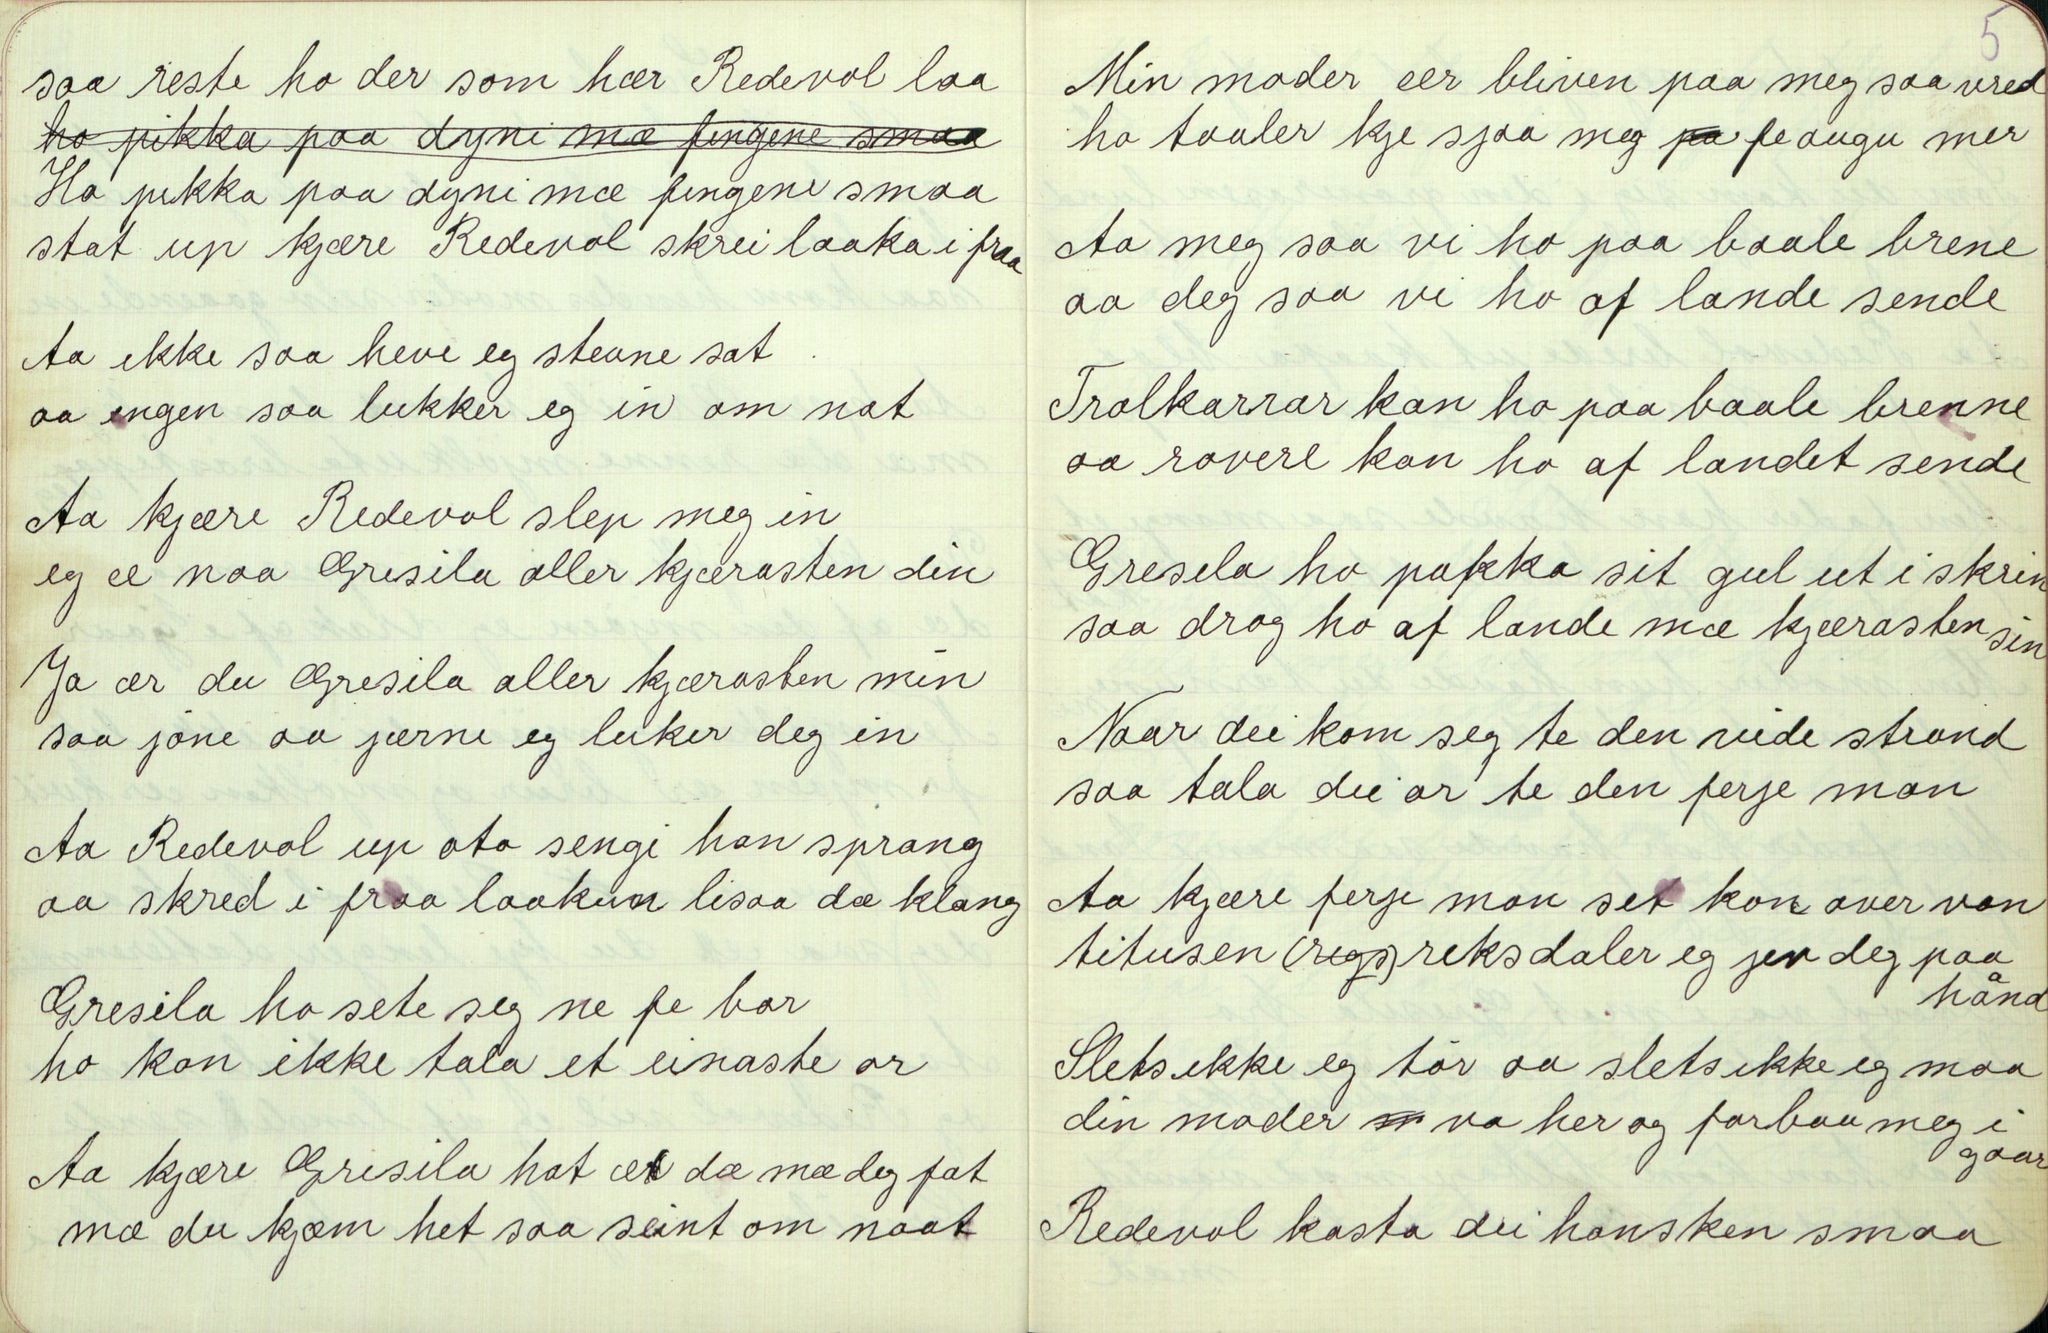 saa reste ho der som hær Redevol laa
ho pikka paa dyni mæ fingene smaa
Ho pikka paa dyni mæ fingene smaa
stat up kjære Redevol skrei laaka i fraa
Aa ikke saa heve eg stevne sat
aa engen saa lukker eg in om nat
Aa kjære Redevol slep meg in
eg æ naa Gresila aller kjærasten din
Ja ær du Gresila aller kjærasten min
saa jöne aa jærne eg luker deg in
Aa Redevol up ota sengi han sprang
aa skred i fraa laakun lisaa dæ klang
Gresila ho sete seg ne fe bor
ho kan ikke tala et einaste or
Aa kjære Gresila hat ær dæ mæ deg fat
mæ du kjæm het saa seint om naat
5
Min moder eer bliven paa meg saa vred
ho taaler kje sjaa meg fe augu mer
Aa meg saa vi ho paa baale brene
aa deg saa vi ho af lande sende
Trolkarrar kan ho paa baale brenne
aa rovere kan ho af landet sende
Gresela ho pakka sit gul ut i skrin
saa drog ho af lande mæ kjærasten sin
Naar dei kom seg te den viide strand
saa tala dei or te den ferje man
Aa kjære ferje man set kon over van
titusen (regs) reksdaler eg jer deg paa
hånd
Slets ikke eg tör aa slets ikke eg maa
din moder va her og forbau meg i
gaar
Redevol kasta dei hansken smaa